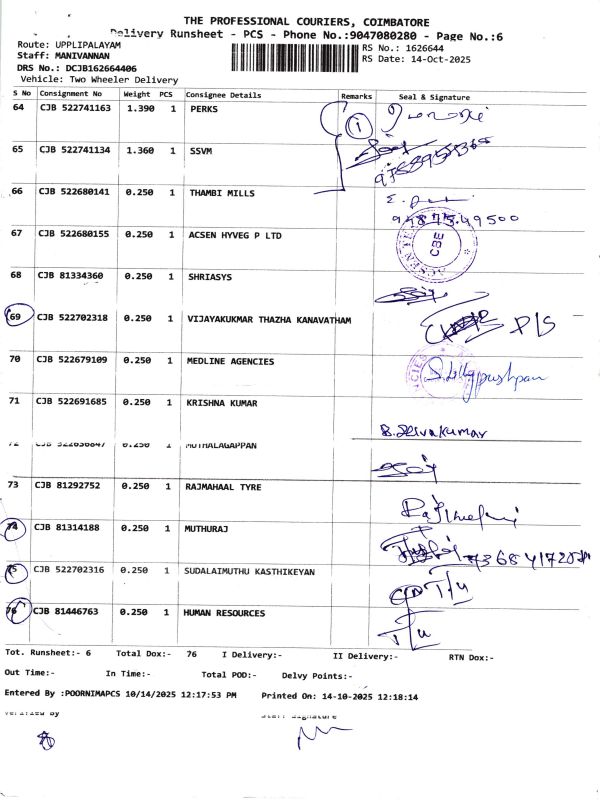 THE PROFESSIONAL COURIERS, COIMBATORE
Delivery Runsheet - PCS - Phone No.:9047080280 - Page No.:6
Route: UPPLIPALAYAM RS No.: 1626644
Staff: MANIVANNAN RS Date: 14-Oct-2025
DRS No.: DCJB162664406
Vehicle: Two Wheeler Delivery
S No Consignment No Weight PCS Consignee Details Remarks Seal & Signature
64 CJB 522741163 1.390 1 PERKS
65 CJB 522741134 1.360 1 SSVM
66 CJB 522680141 0.250 1 THAMBI MILLS
67 CJB 522680155 0.250 1 ACSEN HYVEG P LTD CBE
68 CJB 81334360 0.250 1 SHRIASYS
69 CJB 522702318 0.250 1 VIJAYAKUKMAR THAZHA KANAVATHAM P/S
70 CJB 522679109 0.250 1 MEDLINE AGENCIES
71 CJB 522691685 0.250 1 KRISHNA KUMAR
B.Selvakumar
72 0.250 1 MUTHALAGAPPAN
73 CJB 81292752 0.250 1 RAJMAHAAL TYRE
74 CJB 81314188 0.250 1 MUTHURAJ
75 CJB 522702316 0.250 1 SUDALAIMUTHU KASTHIKEYAN
76 CJB 81446763 0.250 1 HUMAN RESOURCES
Tot. Runsheet:- 6 Total Dox:- 76 I Delivery:- II Delivery:- RTN Dox:-
Out Time:- In Time:- Total POD:- Delvy Points:-
Entered By :POORNIMAPCS 10/14/2025 12:17:53 PM Printed On: 14-10-2025 12:18:14
Verified by Staff Signature